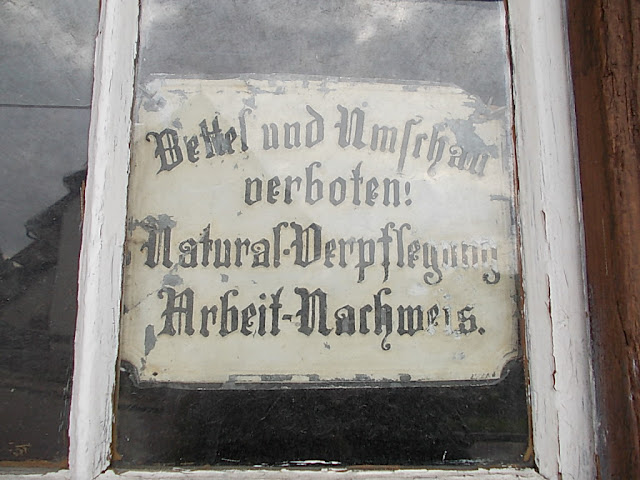 Bettel und Umschau
verboten!
Natural-Verpflegung
Arbeit-Nachweis.